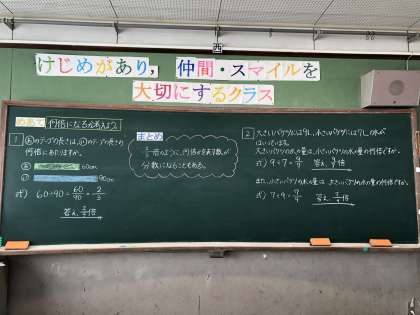 西
けじめがあり, 仲間・スマイルを
大切にするクラス
めあて 何倍になるか考えよう
1 あのテープの長さは, いのテープの長さの
何倍にあたりますか。
あ 60cm
い 90cm
式) 60÷90=60/90=2/3
答え 2/3倍
まとめ
2/3倍のように, 何倍かを表す数が
分数になることもある。
2 大きいバケツには9L, 小さいバケツには7Lの水が
はいっています。
大きいバケツの水の量は, 小さいバケツの水の量の何倍ですか。
式) 9÷7=9/7 答え 9/7倍
また, 小さいバケツの水の量は, 大きいバケツの水の量の何倍ですか。
式) 7÷9=7/9 答え 7/9倍